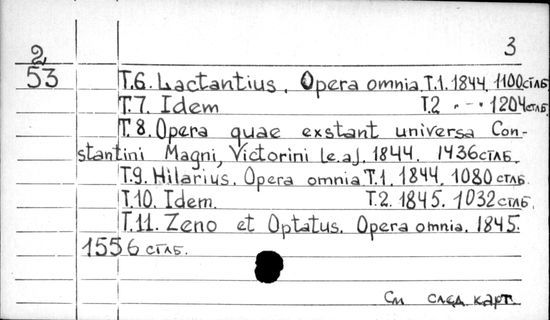 3
2
53
Т.6. Lactantius. Opera omnia. Т.1. 1844. 1100 стлб.
Т.7. Idem Т.2 -"- 1204 стлб.
Т.8. Opera quae exstant universa Con-
stantini Magni, Victorini [e.a]. 1844. 1436 стлб.
Т.9. Hilarius. Opera omnia Т.1. 1844. 1080 стлб.
Т.10. Idem. Т.2. 1845. 1032 стлб.
Т.11. Zeno et Optatus. Opera omnia. 1845.
1556 стлб.
См след. карт.